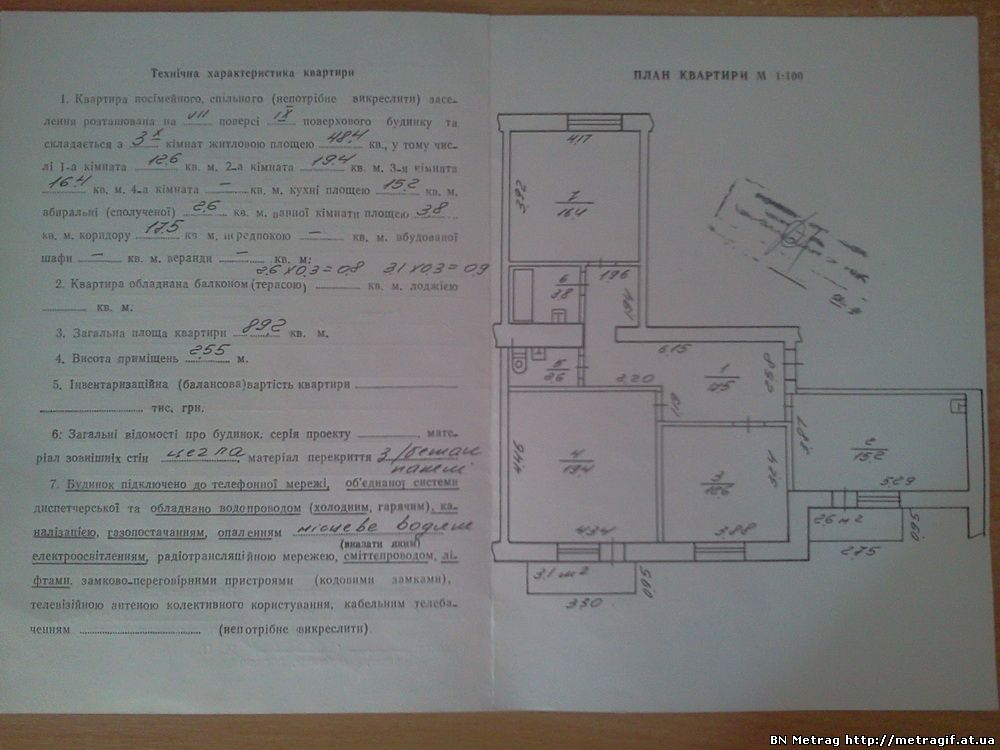 Технічна характеристика квартири
1. Квартира посімейного, спільного (непотрібне викреслити) засе-
лення розташована на VII поверсі IX поверхового будинку та
складається з 3х кімнат житловою площею 48.4 кв., у тому чис-
лі 1-а кімната 12.6 кв. м. 2-а кімната 19.4 кв. м. 3-я кімната
16.4 кв. м. 4-а кімната – кв. м. кухні площею 15.2 кв. м.
вбиральні (сполученої) 2.6 кв. м. ванної кімнати площею 3.8
кв. м. коридору 17.5 кв. м. передпокою – кв. м. вбудованої
шафи – кв. м. веранди – кв. м;
2.6 х 0.3 = 0.8 3.1 х 0.3 = 0.9
2. Квартира обладнана балконом (терасою) кв. м. лоджією
кв. м.
3. Загальна площа квартири 89.2 кв. м.
4. Висота приміщень 2.55 м.
5. Інвентаризаційна (балансова) вартість квартири
тис. грн.
6: Загальні відомості про будинок. серія проекту мате-
ріал зовнішніх стін цегла, матеріал перекриття з/бетан
панелі
7. Будинок підключено до телефонної мережі, об'єднаної системи
диспетчерської та обладнано водопроводом (холодним, гарячим), ка-
налізацією, газопостачанням, опаленням місцеве водяне
(вказати яким)
електроосвітленням, радіотрансляційною мережею, сміттєпроводом, лі-
фтами, замково-переговірними пристроями (кодовими замками),
телевізійною антеною колективного користування, кабельним телеба-
ченням (непотрібне викреслити)
ПЛАН КВАРТИРИ М 1:100
4.17
3.92
7
16.4
6
3.8
1.96
1.91
6.15
5
2.6
2.20
1
17.5
2.98
1.11
4.46
4
19.4
4.34
3
12.6
3.24
3.88
2.88
2
15.2
5.29
2.6 м2
0.95
2.75
3.1 м2
0.95
3.30
BN Metrag http://metragif.at.ua